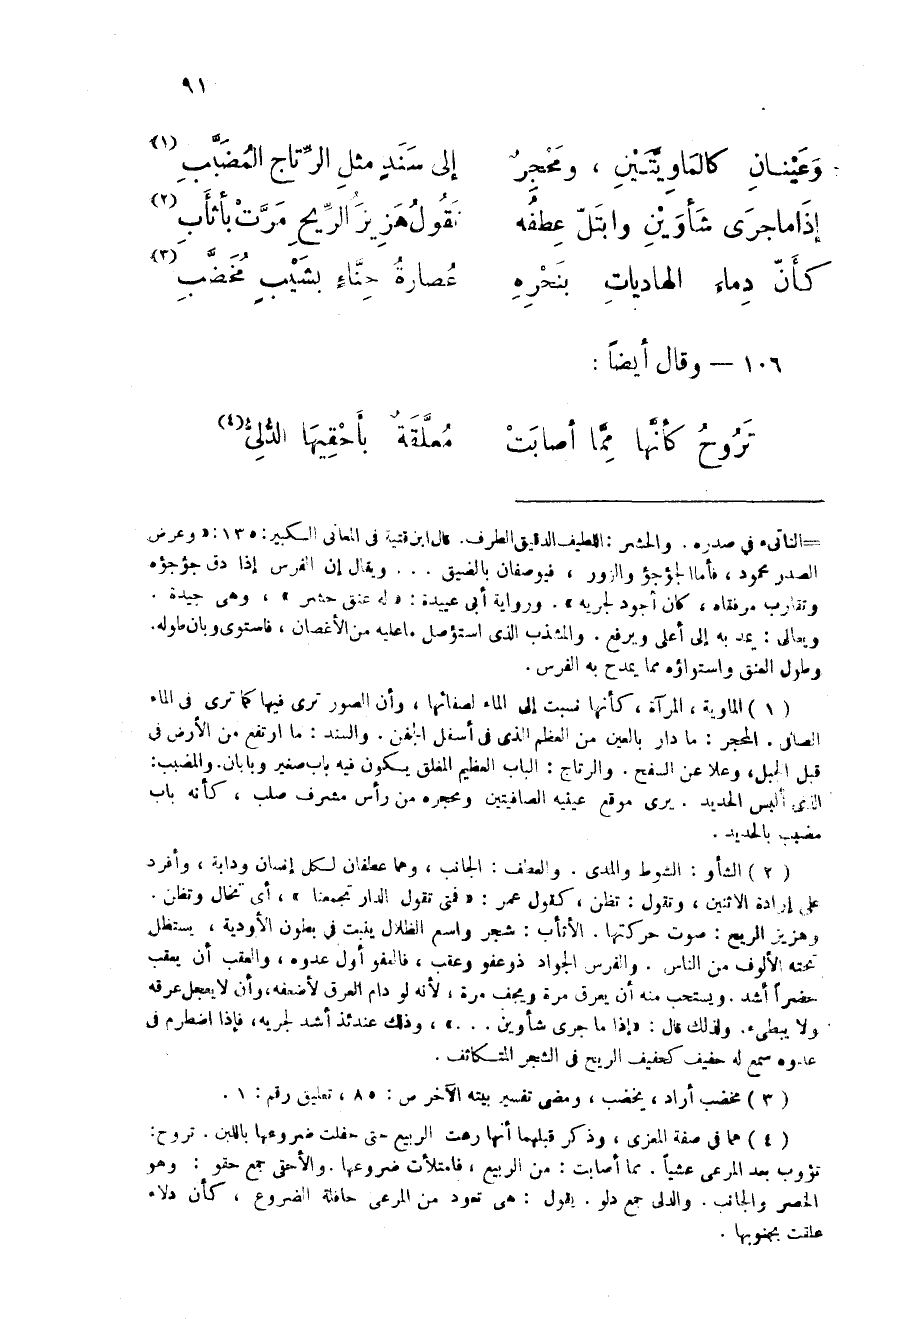 ٩١
وَعَيْنانِ كالمَاوِيَّتَيْنِ ، ومَحْجِرٌ إلى سَنَدٍ مثلِ الرِّتاجِ المُضَبَّبِ (١)
إذَا ماجرَى شَأوَيْنِ وابتَلّ عِطفُه تقُولُ هَزِيزَ الرِّيحِ مَرَّتْ بأثأَبِ (٢)
كأَنّ دِماء الهادياتِ بنَحْرِهِ عُصارةُ حِنَّاءِ بشَيْبٍ مُخَضَّبِ (٣)
١٠٦ — وقال أيضاً :
تَرُوحُ كأنَّها مِمَّا أصابَتْ مُعلَّقَةٌ بأَحْقِيهَا الدُّلِيُّ (٤)
=النأتىء فى صدره . والحشر : اللطيف الدقيق الطرف. قال ابن قتيبة فى المعانى الكبير: ١٣٥: « وعرض
الصدر محمود ، فأما الجؤجؤ والزور ، فيوصفان بالضيق . . . ويقال إن الفرس إذا دق جؤجؤه
وتقارب مرفقاه ، كان أجود لجريه » . ورواية أبى عبيدة : « له عنق حشر » ، وهى جيدة .
ويعالى : يمد به إلى أعلى ويرفع . والمشذب الذى استؤصل ماعليه من الأغصان ، فاستوى وبان طوله.
وطول العنق واستواؤه مما يمدح به الفرس .
( ١ ) الماوية ، المرآة ، كأنها نسبت إلى الماء لصفائها ، وأن الصور ترى فيها كما ترى فى الماء
الصافى . المحجر : ما دار بالعين من العظم الذى فى أسفل الجفن . والسند : ما ارتفع من الأرض فى
قبل الجبل، وعلا عن السفح . والرتاج : الباب العظيم المغلق يكون فيه باب صغير وبابان. والمضبب:
الذى ألبس الحديد . يرى موقع عينيه الصافيتين ومحجره من رأس مشرف صلب ، كأنه باب
مضبب بالحديد .
( ٢ ) الشأو : الشوط والمدى . والعطف : الجانب ، وهما عطفان لكل إنسان ودابة ، وأفرد
على إرادة الاثنين ، وتقول : تظن ، كقول عمر : « فمتى تقول الدار تجمعنا » ، أى تخال وتظن .
وهزيز الريح : صوت حركتها . الأثأب : شجر واسع الظلال ينبت فى بطون الأودية ، يستظل
تحته الألوف من الناس . والفرس الجواد ذو عفو وعقب ، فالعفو أول عدوه ، والعقب أن يعقب
حضراً أشد . ويستحب منه أن يعرق مرة ويجف مرة ، لأنه لو دام العرق لأضعفه، وأن لا يعجل عرقه
ولا يبطىء. ولذلك قال : «إذا ما جرى شأوين . . .» ، وذلك عندئذ أشد لجريه، فإذا اضطرم فى
عدوه سمع له حفيف كحفيف الريح فى الشجر المتكاثف .
( ٣ ) مخضب أراد ، يخضب ، ومضى تفسير بيته الآخر ص : ٨٥ ، تعليق رقم : ١ .
( ٤ ) هما فى صفة المعزى ، وذكر قبلهما أنها رعت الربيع حتى حفلت ضروعها باللبن . تروح :
تؤوب بعد المرعى عشياً . مما أصابت : من الربيع ، فامتلأت ضروعها . والأحقى جمع حقو : وهو
الخصر والجانب . والدلى جمع دلو . يقول : هى تعود من المرعى حافلة الضروع ، كأن دلاء
علقت بجنوبها .